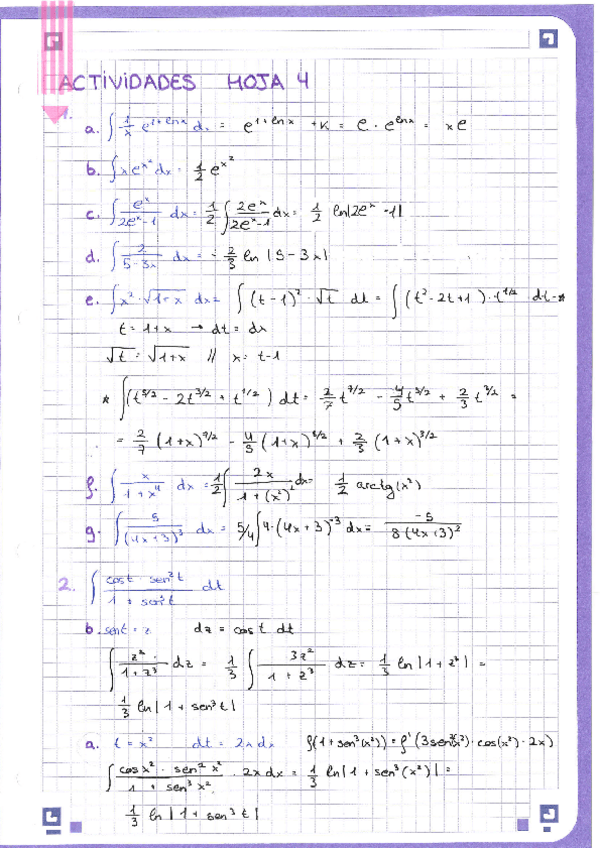 ACTIVIDADES HOJA 4
1.
a. ∫ 1/x e^(1+lnx) dx = e^(1+lnx) + K = e · e^(lnx) = xe
b. ∫ x e^(x²) dx = 1/2 e^(x²)
c. ∫ e^x/(2e^x-1) dx = 1/2 ∫ 2e^x/(2e^x-1) dx = 1/2 ln|2e^x -1|
d. ∫ 2/(5-3x) dx = -2/3 ln |5-3x|
e. ∫ x² · √(1+x) dx = ∫ (t-1)² · √t dt = ∫ (t²-2t+1) · t^(1/2) dt = *
t = 1+x → dt = dx
√t = √(1+x) // x = t-1
* ∫ (t^(5/2) - 2t^(3/2) + t^(1/2)) dt = 2/7 t^(7/2) - 4/5 t^(5/2) + 2/3 t^(3/2) =
= 2/7 (1+x)^(7/2) - 4/5 (1+x)^(5/2) + 2/3 (1+x)^(3/2)
f. ∫ x/(1+x⁴) dx = 1/2 ∫ 2x/(1+(x²)²) dx = 1/2 arctg(x²)
g. ∫ 5/(4x+3)³ dx = 5/4 ∫ 4·(4x+3)^(-3) dx = -5/(8(4x+3)²)
2. ∫ (cost · sen²t)/(1 + sen³t) dt
b. sent = z dz = cost dt
∫ z²/(1+z³) dz = 1/3 ∫ 3z²/(1+z³) dz = 1/3 ln|1+z³| =
1/3 ln|1+sen³t|
a. t = x² dt = 2x dx f(1+sen³(x²)) = f'(3sen²(x²)·cos(x²)·2x)
∫ (cosx² · sen²x²)/(1 + sen³x²) · 2x dx = 1/3 ln|1+sen³(x²)| =
1/3 ln|1+sen³t|